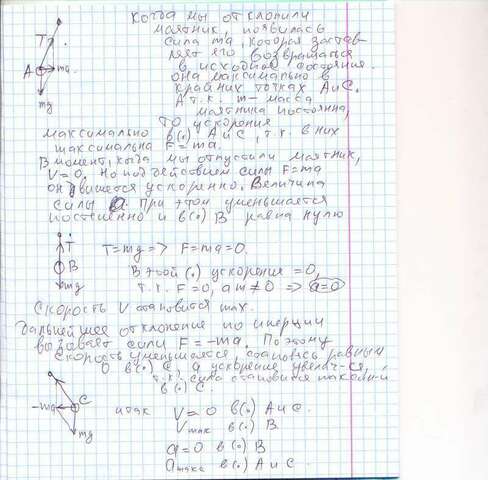 Когда мы отклонили
маятник, появилась
сила ma, которая застав
ляет его возвращаться
в исходное состояние.
она максимально в
крайних точках А и С.
А т.к. m - масса
маятника постоянна,
то ускорения
максимально в(.) А и С, т.к. в них
максимальна F = ma.
В момент, когда мы отпустили маятник,
V=0. Но под действием силы F=ma
он движется ускоренно. Величина
силы При этом уменьшается
постепенно и в(.) В равна нулю
T
A
ma
mg
T
B
mg
T=mg => F=ma=0.
В этой (.) ускорение =0,
т.к. F=0, а m≠0 => a=0
Скорость V становится max.
Дальнейшее отклонение по инерции
вызывает силу F=-ma. Поэтому
скорость уменьшается, становясь равным
0 в(.) С, а ускорение увелич-ся,
т.к. сила становится
в(.) С.
-ma
C
mg
итак V=0 в(.) А и С.
Vmax в(.) В
a=0 в(.) В
amax в(.) А и С.